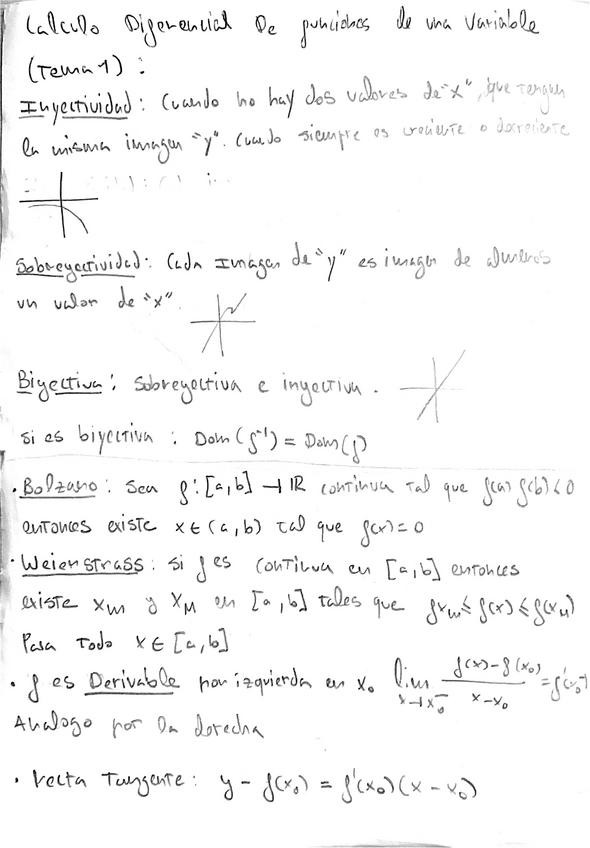 Calculo Diferencial De funciones de una variable
(Tema 1) :
Inyectividad : Cuando no hay dos valores de "x", que tengan
la misma imagen "y". Cuando siempre es creciente o decreciente
Sobreyectividad : Cada Imagen de "y" es imagen de almenos
un valor de "x".
Biyectiva : Sobreyectiva e inyectiva .
si es biyectiva : Dom(f⁻¹) = Dom(f)
· Bolzano : Sea f : [a,b] → IR continua tal que f(a) f(b) < 0
entonces existe x ∈ (a,b) tal que f(x) = 0
· Weierstrass : si f es continua en [a,b] entonces
existe xm y xM en [a,b] tales que f(xm ≤ f(x) ≤ f(xM)
Para Todo x ∈ [a,b]
· f es Derivable por izquierda en x₀ lim x→x₀⁻ f(x)-f(x₀) / x-x₀ = f'(x₀⁻)
Analogo por la derecha
· recta Tangente : y - f(x₀) = f'(x₀)(x - x₀)